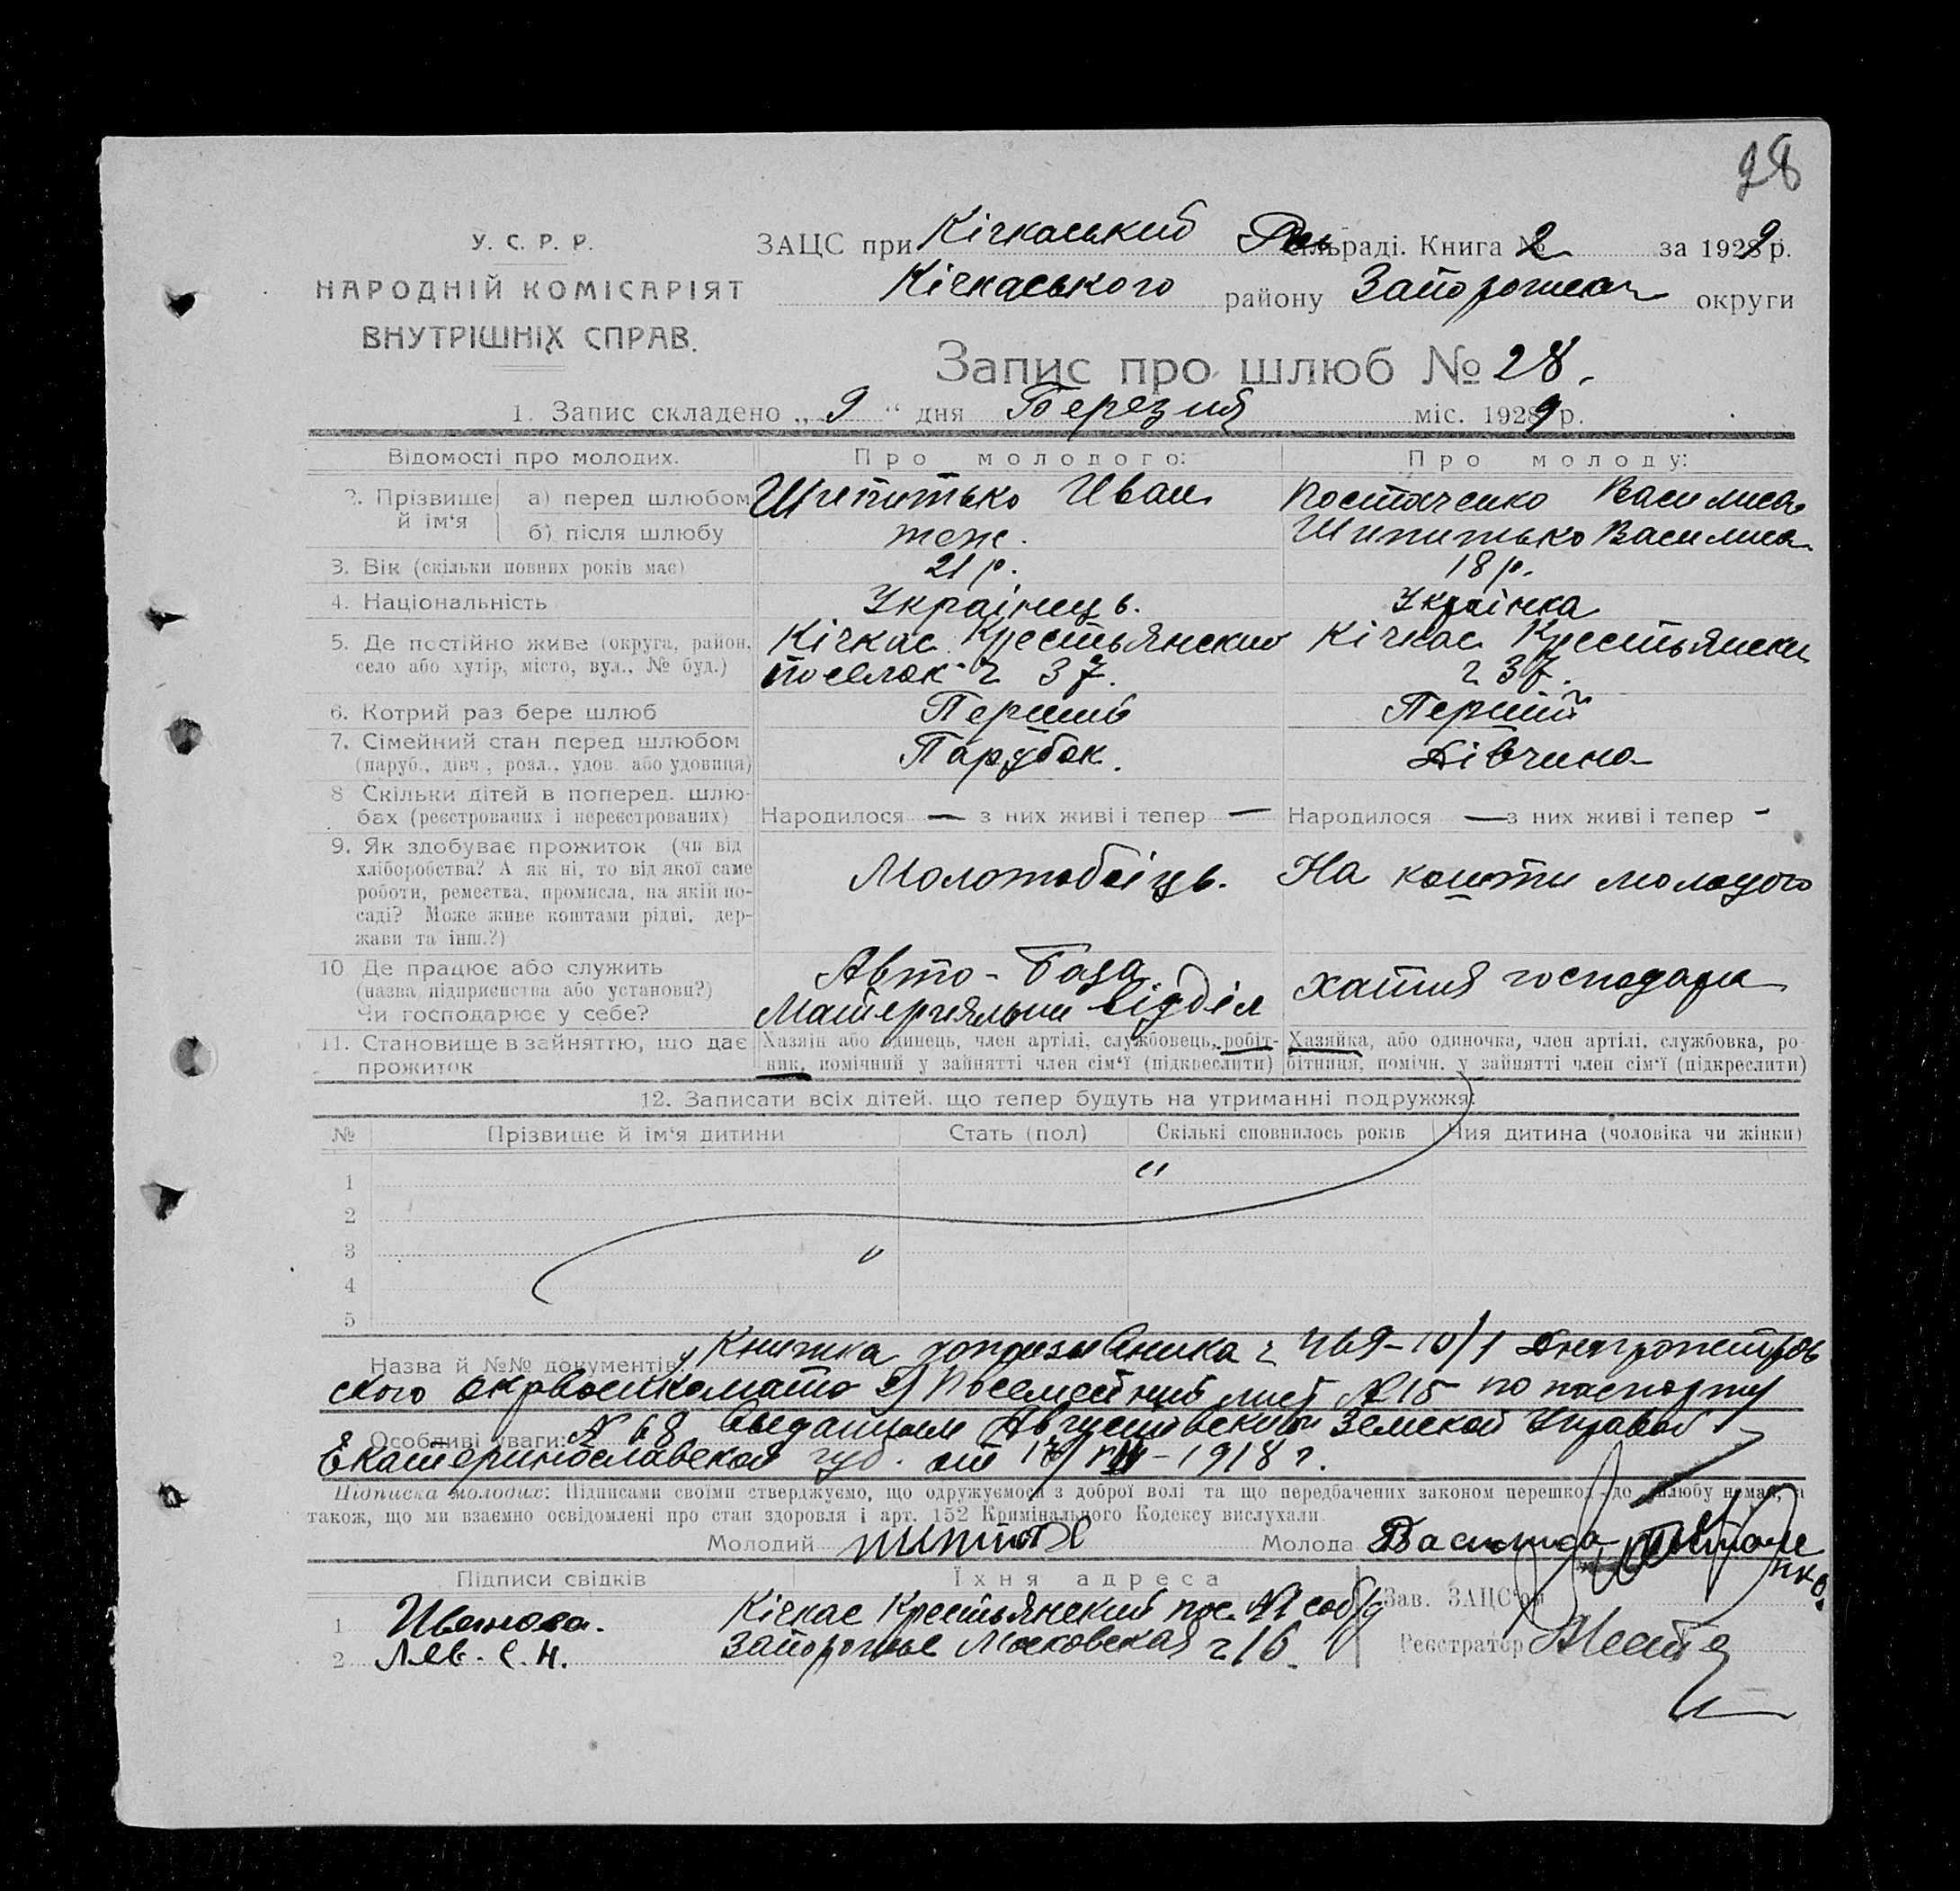 28
У. С. Р. Р.
НАРОДНІЙ КОМІСАРІЯТ
ВНУТРІШНІХ СПРАВ.
ЗАЦС при Кічкаський сільраді. Книга № 2 за 1929 р.
Кічкаського району Запоріжской округи
Запис про шлюб № 28.
1. Запис складено „ 9 “ дня Березня міс. 1929 р.
Відомості про молодих. Про молодого: Про молоду:
2. Прізвище й ім‘я а) перед шлюбом Шипитько Иван Постаченко Василиса
б) після шлюбу теж. Шипитько Василиса
3. Вік (скільки повних років має) 21 р. 18 р.
4. Національність Українець. Українка
5. Де постійно живе (округа, район, Кічкас Крестьянский Кічкас Крестьянски
село або хутір, місто, вул., № буд.) поселок ч 37. ч 37.
6. Котрий раз бере шлюб Перший Перший
7. Сімейний стан перед шлюбом Парубок. Дівчина
(паруб., дівч., розл., удов. або удовиця)
8 Скільки дітей в поперед. шлю-
бах (реєстрованих і нереєстрованих) Народилося — з них живі і тепер — Народилося — з них живі і тепер -
9. Як здобуває прожиток (чи від
хліборобства? А як ні, то від якої саме
роботи, ремества, промисла, на якій по- Молотобоіць. На кошти молодого
саді? Може живе коштами рідні, дер-
жави та інш.?)
10 Де працює або служить Авто - База
(назва підприємства або установи?) Матеріяльни відділ хатня господарка
Чи господарює у себе?
11. Становище в зайняттю, що дає Хазяїн або одинець, член артілі, службовець, робіт- Хазяйка, або одиночка, член артілі, службовка, ро-
прожиток ник, помічний у зайнятті член сім‘ї (підкреслити) бітниця, помічн. у зайнятті член сім‘ї (підкреслити)
12. Записати всіх дітей, що тепер будуть на утриманні подружжя:
№ Прізвище й ім‘я дитини Стать (пол) Скількі сповнилось років Чия дитина (чоловіка чи жінки)
1 "
2
3 "
4
5
Назва й №№ документів Книжка допризывника ч 469-10/1 Днепропетров
ского окрвоенкомата 2) Посемейний лист №15 по паспорту
Особливі уваги: № 68 выданным Августовской Земской Управой
Екатеринославской губ. от 17/VIII-1918 г.
Підписка молодих: Підписами своїми стверджуємо, що одружуємося з доброї волі та що передбачених законом перешкод до шлюбу немає, а
також, що ми взаємно освідомлені про стан здоровля і арт. 152 Кримінального Кодексу вислухали.
Молодий Молода Василиса
Підписи свідків Їхня адреса Зав. ЗАЦС‘ом
1 Иванова. Кічкас Крестьянский пос.
2 Лев. С. Н. Запорожье Московская ч 16. Реєстратор